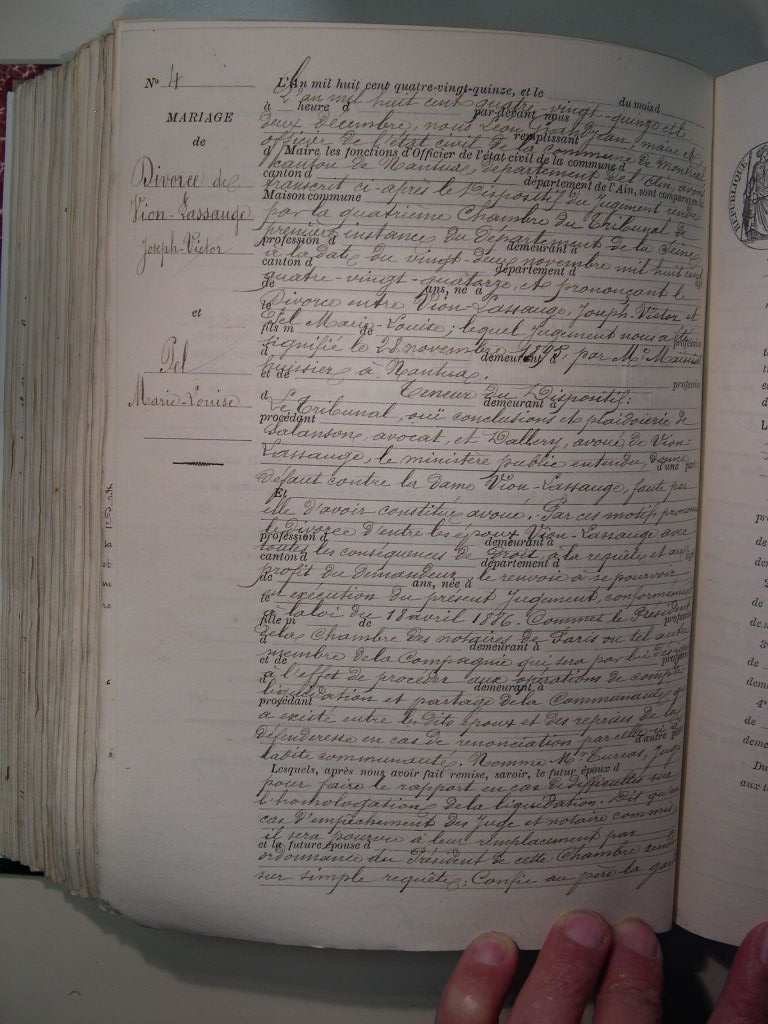 N° 4
MARIAGE
de
Divorce de
Vion-Lassauge
Joseph-Victor
et
Pel
Marie-Louise
L'An mil huit cent quatre-vingt-quinze, et le du mois d
L'an mil huit cent quatre-vingt-quinze et le
à heure d par-devant nous
deux Décembre, nous Léon maire et
remplissant
officier de l'état civil de la commune de Montréal
d Maire les fonctions d'Officier de l'état civil de la commune d
canton de Nantua, département de l'Ain, avons
canton d département de l'Ain, sont comparus
transcrit ci-après le Dispositif du Jugement rendu
Maison commune
par la quatrième Chambre du Tribunal de
première instance du Département de la Seine
profession d demeurant à
à la date du vingt-deux novembre mil huit cent
canton d département d
quatre-vingt-quatorze, et prononçant le
de ans, né à
Divorce entre Vion-Lassauge, Joseph-Victor et
le
Pel Marie-Louise; lequel Jugement nous a été
fils m de profession
signifié le 28 novembre 1895, par Me
d demeurant à
huissier à Nantua.
et de profession
Teneur du Dispositif:
d demeurant à
Le Tribunal, ouï conclusions et plaidoirie de
procédant
Salanson, avocat, et Dallery, avoué de Vion-
Lassauge, le ministère public entendu, donne
d'une part
Défaut contre la dame Vion-Lassauge, faute par
Et
elle d'avoir constitué avoué. Par ces motifs prononce
le divorce d'entre les époux Vion-Lassauge avec
profession d demeurant à
toutes les conséquences de droit à la requête et au
canton d département d
profit du demandeur, le renvoie à se pourvoir
de ans, née à
en exécution du présent Jugement, conformément
le
à la loi du 18 avril 1886. Commet le Président
fille m de profession
de la Chambre des notaires de Paris ou tel autre
d demeurant à
membre de la Compagnie qui sera par lui désigné
et de profession
à l'effet de procéder aux opérations de compte
d demeurant à
liquidation et partage de la Communauté qui
procédant
a existé entre les dits époux et des reprises de la
défenderesse en cas de renonciation par elle à
d'autre part
ladite communauté. Nomme Mr Juge
Lesquels, après nous avoir fait remise, savoir, le futur époux d
pour faire le rapport en cas de difficultés sur
l'homologation de la liquidation. Dit qu'en
cas d'empêchement des Juge et notaire commis,
il sera pourvu à leur remplacement par
et la future épouse d
ordonnance du Président de cette Chambre rendue
sur simple requête. Confie au père la garde